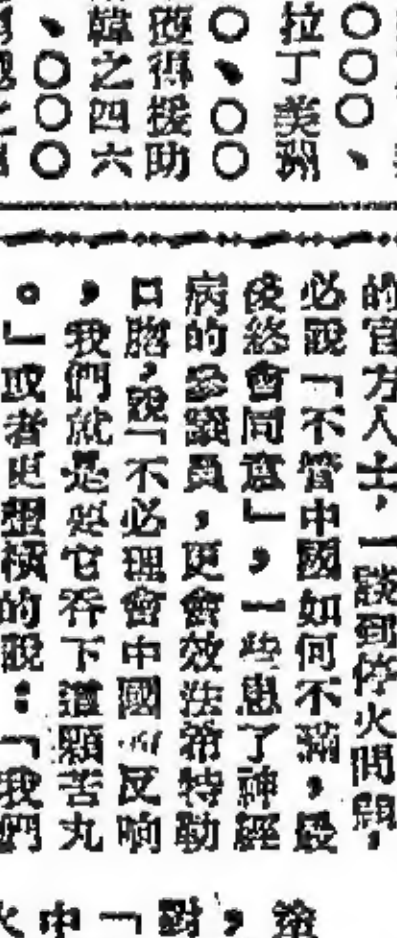 〇〇〇、
拉丁美洲
〇、〇〇
獲得援助
韓之四六
、〇〇〇
的官方人士，一談到停火問題，
必說「不管中國如何不滿，最
後終會同意」，一些患了神經
病的參議員，更會效法希特勒
口脗，說「不必理會中國的反响
，我們就是要它吞下這顆苦丸
。」或者更想横的說：「我們
，對「中火